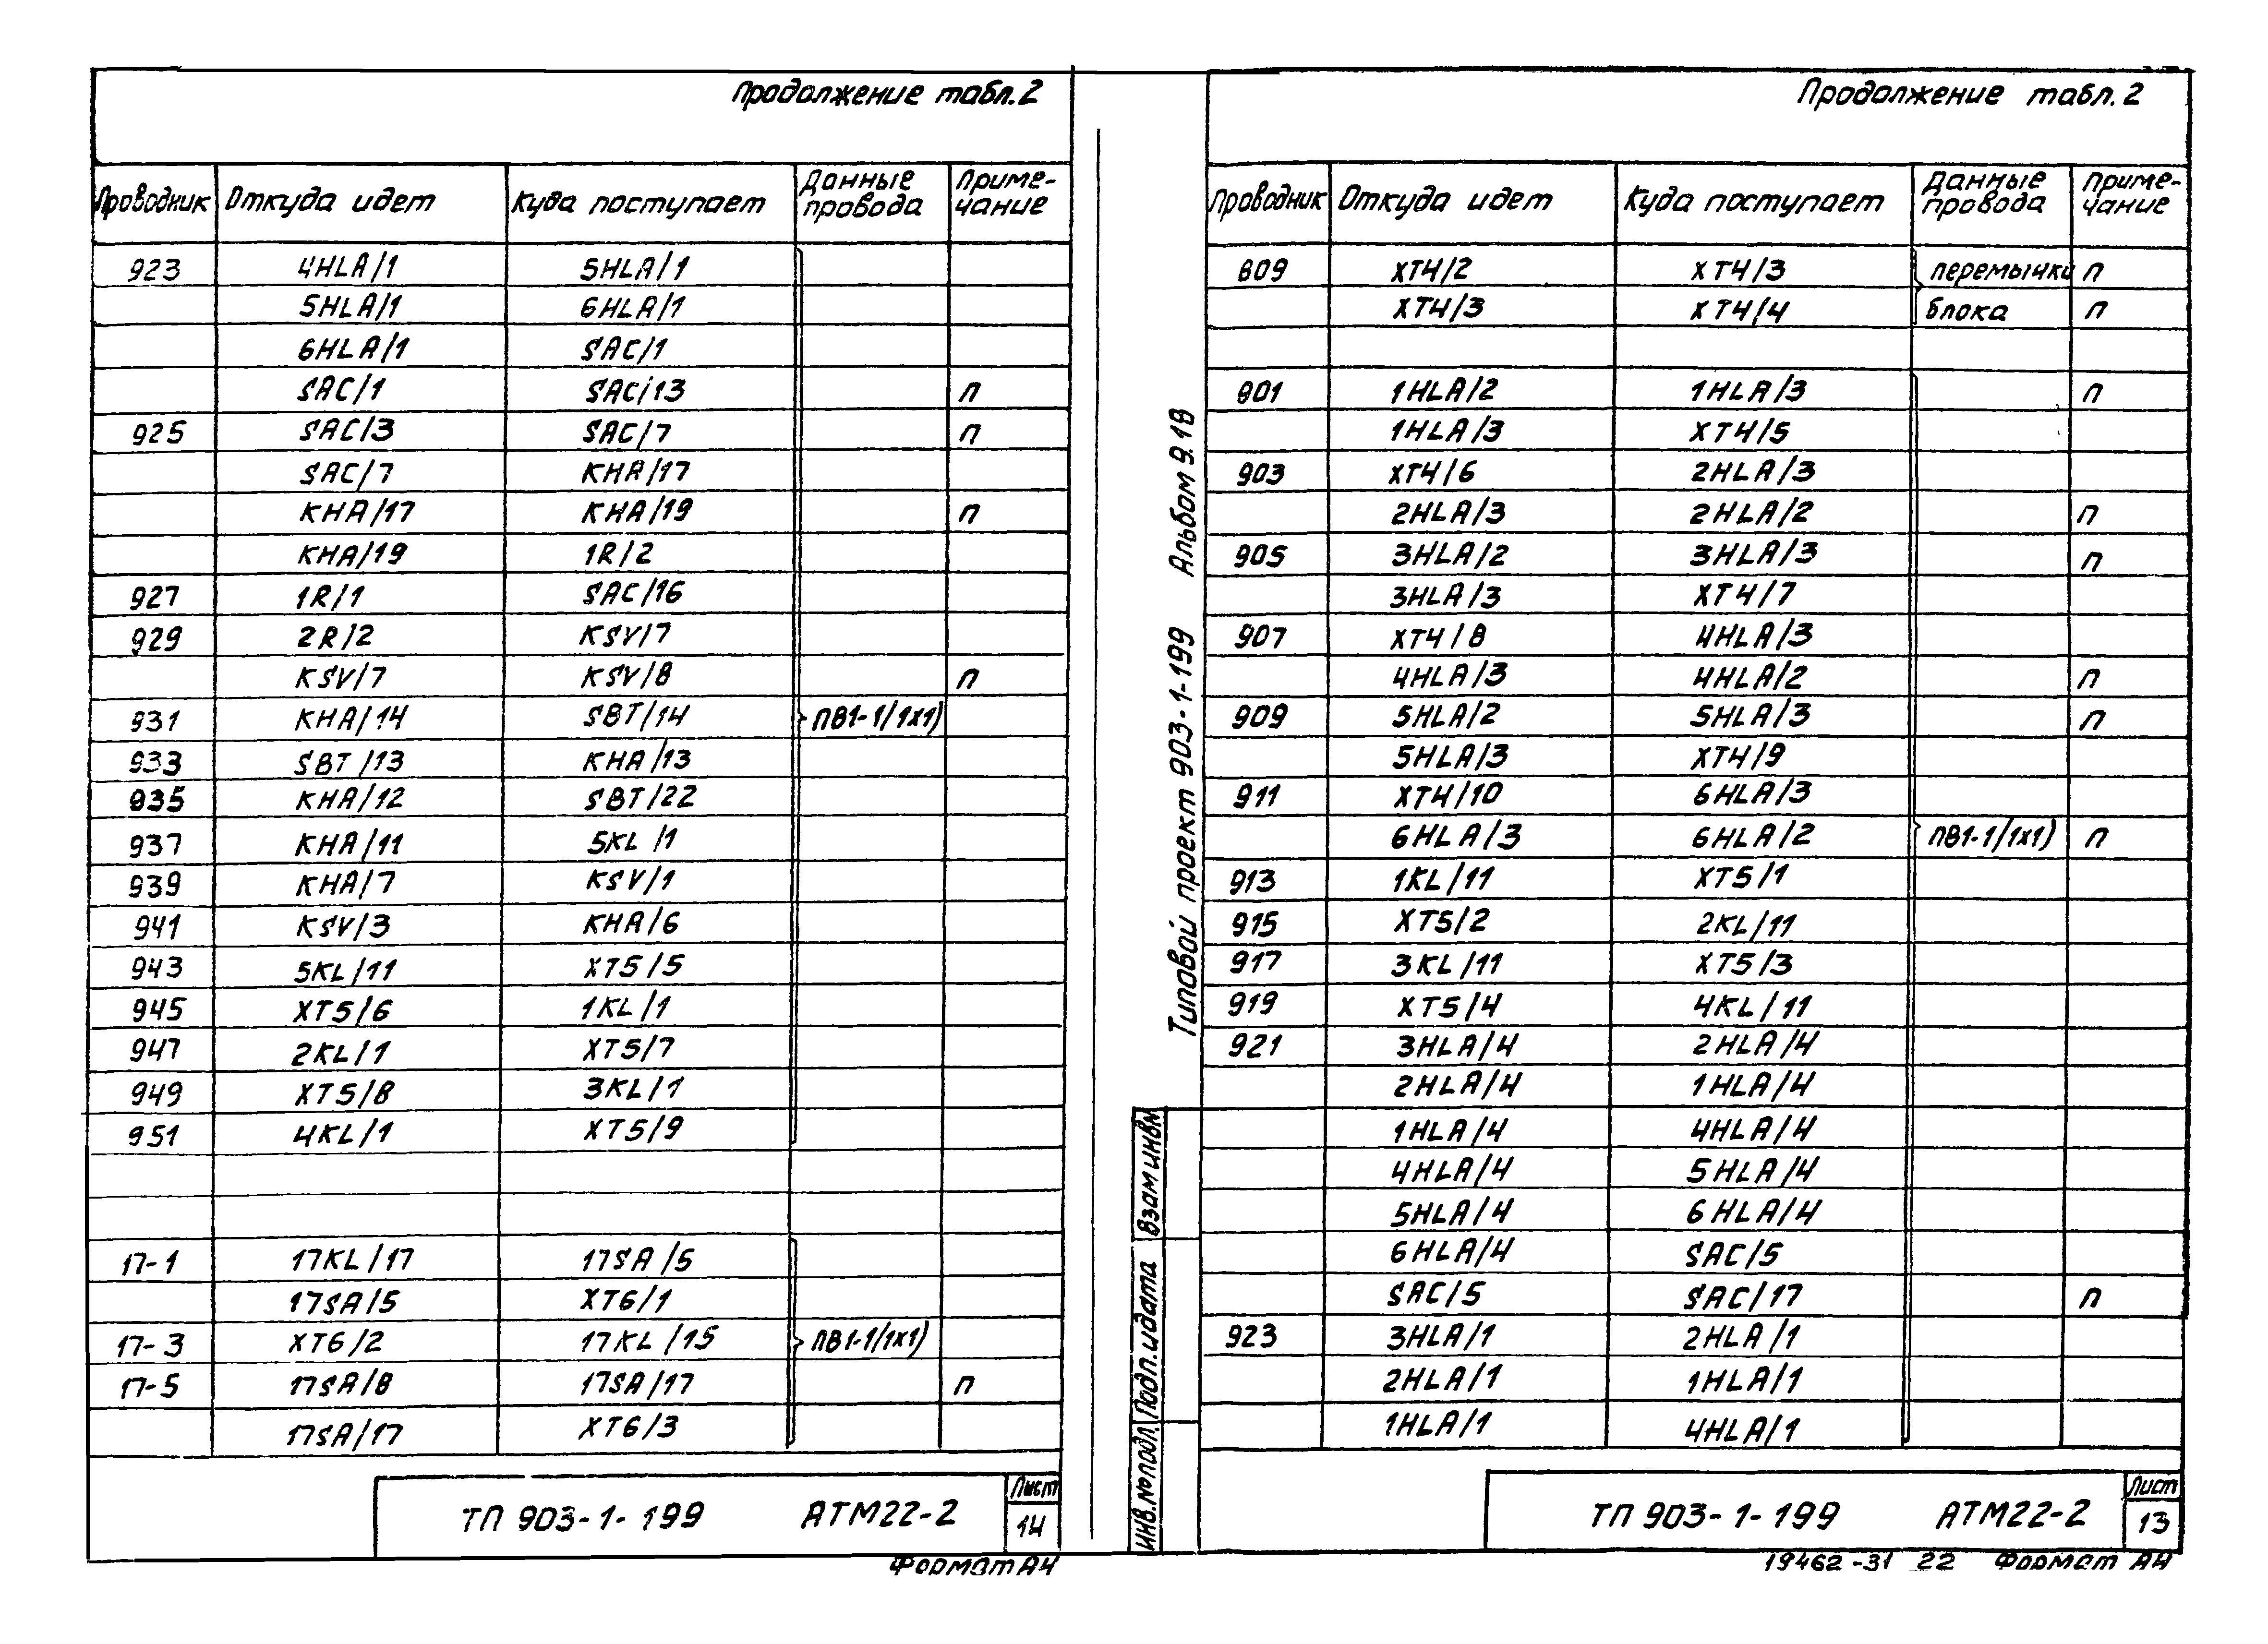 Продолжение табл.2
Проводник Откуда идет Куда поступает Данные провода Приме-чание
923 4HLA/1 5HLA/1
5HLA/1 6HLA/1
6HLA/1 SAC/1
SAC/1 SAC/13 П
925 SAC/3 SAC/7 П
SAC/7 KHA/17
KHA/17 KHA/19 П
KHA/19 1R/2
927 1R/1 SAC/16
929 2R/2 KSV/7
KSV/7 KSV/8 П
931 KHA/14 SBT/14 ПВ1-1/1x1)
933 SBT/13 KHA/13
935 KHA/12 SBT/22
937 KHA/11 5KL/1
939 KHA/7 KSV/1
941 KSV/3 KHA/6
943 5KL/11 XT5/5
945 XT5/6 1KL/1
947 2KL/1 XT5/7
949 XT5/8 3KL/1
951 4KL/1 XT5/9
17-1 17KL/17 17SA/5
17SA/5 XT6/1
17-3 XT6/2 17KL/15 ПВ1-1/1x1)
17-5 17SA/8 17SA/17 П
17SA/17 XT6/3
ТП 903-1-199 АТМ22-2
Лист
14
Формат А4
Типовой проект 903-1-199 Альбом 9.18
Инв.№подл. Подп.и дата Взам инв№
Продолжение табл.2
Проводник Откуда идет Куда поступает Данные провода Приме-чание
809 XT4/2 XT4/3 перемычки П
XT4/3 XT4/4 блока П
901 1HLA/2 1HLA/3 П
1HLA/3 XT4/5
903 XT4/6 2HLA/3
2HLA/3 2HLA/2 П
905 3HLA/2 3HLA/3 П
3HLA/3 XT4/7
907 XT4/8 4HLA/3
4HLA/3 4HLA/2 П
909 5HLA/2 5HLA/3 П
5HLA/3 XT4/9
911 XT4/10 6HLA/3
6HLA/3 6HLA/2 ПВ1-1/1x1) П
913 1KL/11 XT5/1
915 XT5/2 2KL/11
917 3KL/11 XT5/3
919 XT5/4 4KL/11
921 3HLA/4 2HLA/4
2HLA/4 1HLA/4
1HLA/4 4HLA/4
4HLA/4 5HLA/4
5HLA/4 6HLA/4
6HLA/4 SAC/5
SAC/5 SAC/17 П
923 3HLA/1 2HLA/1
2HLA/1 1HLA/1
1HLA/1 4HLA/1
ТП 903-1-199 АТМ22-2
Лист
13
19462-31 22 Формат А4